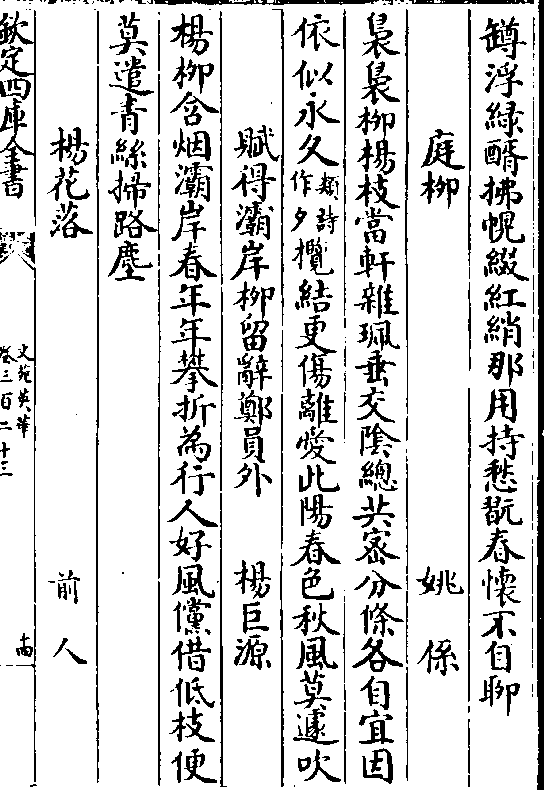 罇浮緑醑拂幌綴紅綃那用持愁翫春懷不自聊
庭柳 姚係
裊裊柳楊枝當軒雜珮垂交隂總共宻分條各自宜因
依似永久類詩作夕攬結更傷離愛此陽春色秋風莫遽吹
賦得灞岸柳留辭鄭員外 楊巨源
楊柳含烟灞岸春年年攀折為行人好風儻借低枝便
莫遣青絲掃路塵
楊花落 前人
欽定四庫全書 文苑英華卷三百二十三